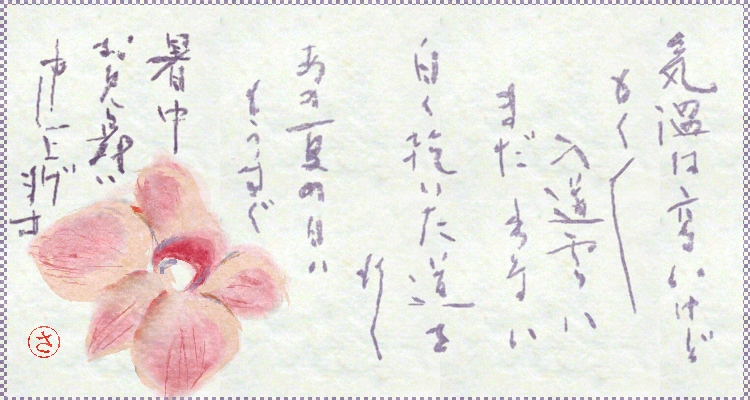 気温は高いけど
もく〳〵
入道雲は
まだ出ない
白く乾いた道を
行く
あの夏の日は
もうすぐ
暑中
お見舞い
申し上げます
さ